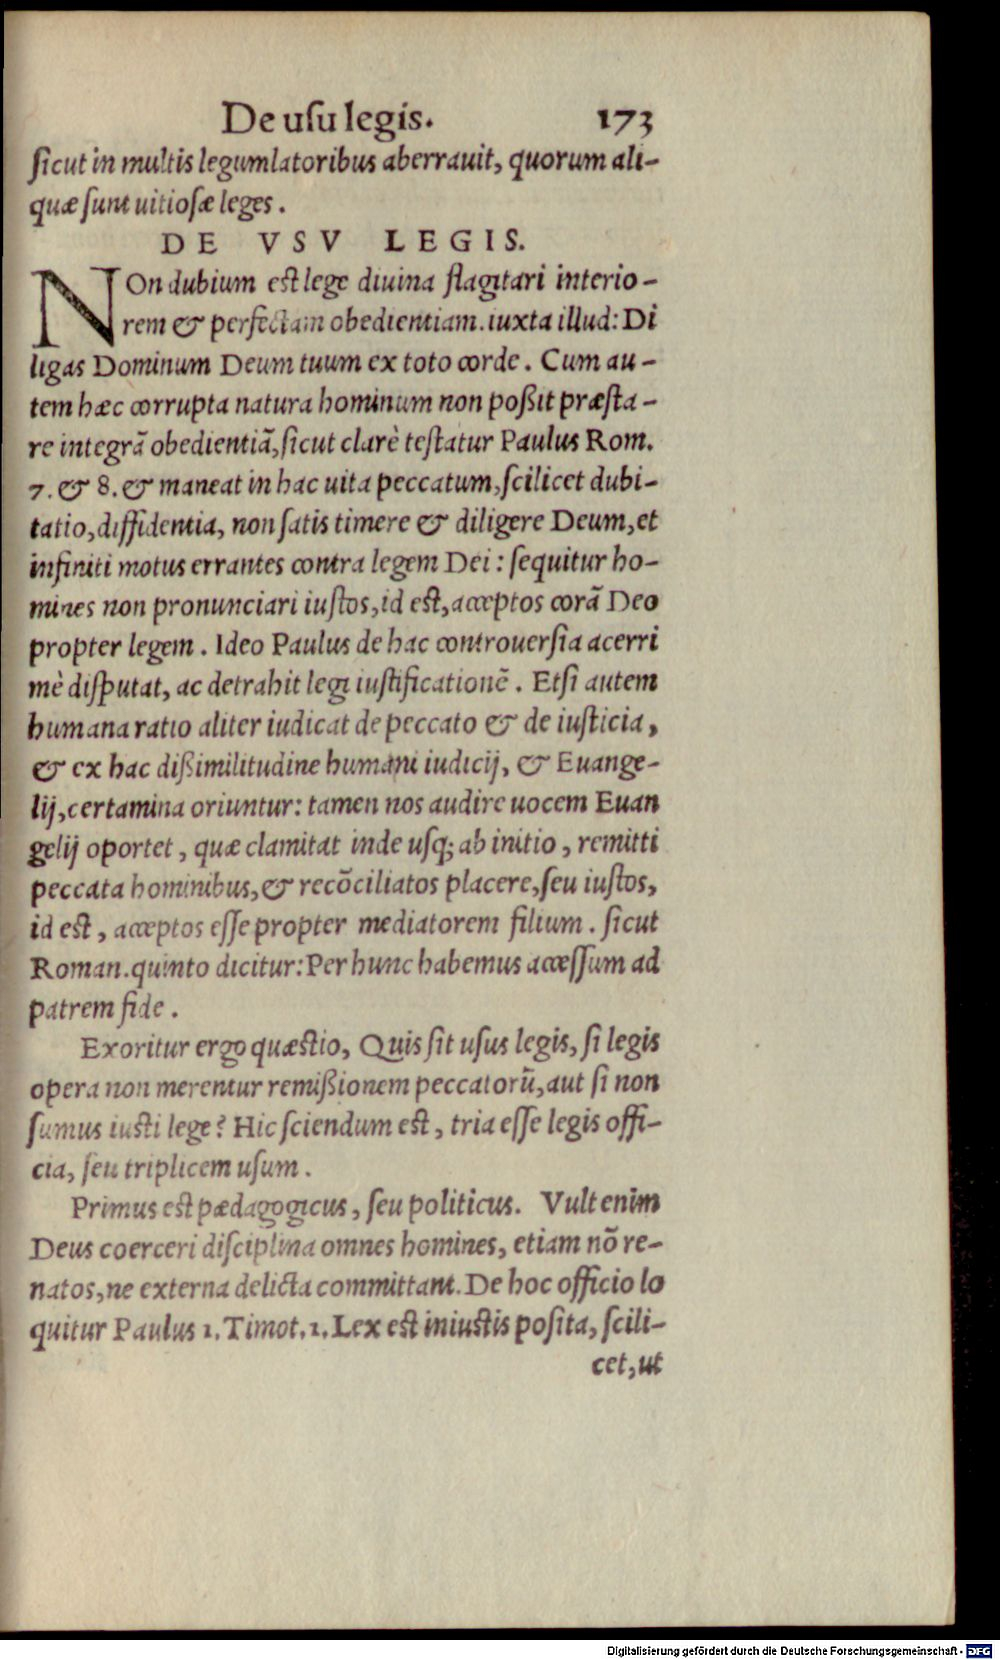 De uſu legis. 173
ſicut in multis legumlatoribus aberrauit, quorum ali-
quæ ſunt uitioſæ leges.
DE VSV LEGIS.
NOn dubium est lege diuina flagitari interio-
rem & perfectam obedientiam. iuxta illud: Di
ligas Dominum Deum tuum ex toto corde. Cum au-
tem hæc corrupta natura hominum non poßit præſta-
re integrã obedientiã, ſicut clarè teſtatur Paulus Rom.
7. & 8. & maneat in hac uita peccatum, ſcilicet dubi-
tatio, diffidentia, non ſatis timere & diligere Deum, et
infiniti motus errantes contra legem Dei: ſequitur ho-
mines non pronunciari iuſtos, id est, acceptos corã Deo
propter legem. Ideo Paulus de hac controuerſia acerri
mè diſputat, ac detrahit legi iuſtificationẽ. Etſi autem
humana ratio aliter iudicat de peccato & de iuſticia,
& ex hac dißimilitudine humani iudicij, & Euange-
lij, certamina oriuntur: tamen nos audire uocem Euan
gelij oportet, quæ clamitat inde uſq; ab initio, remitti
peccata hominibus, & recõciliatos placere, ſeu iuſtos,
id est, acceptos eſſe propter mediatorem filium. ſicut
Roman. quinto dicitur: Per hunc habemus acceſſum ad
patrem fide.
Exoritur ergo quæstio, Quis ſit uſus legis, ſi legis
opera non merentur remißionem peccatorũ, aut ſi non
ſumus iusti lege? Hic ſciendum est, tria eſſe legis offi-
cia, ſeu triplicem uſum.
Primus est pædagogicus, ſeu politicus. Vult enim
Deus coerceri diſciplina omnes homines, etiam nõ re-
natos, ne externa delicta committant. De hoc officio lo
quitur Paulus 1. Timot. 1. Lex est iniustis poſita, ſcili-
cet, ut
Digitalisierung gefördert durch die Deutsche Forschungsgemeinschaft - DFG